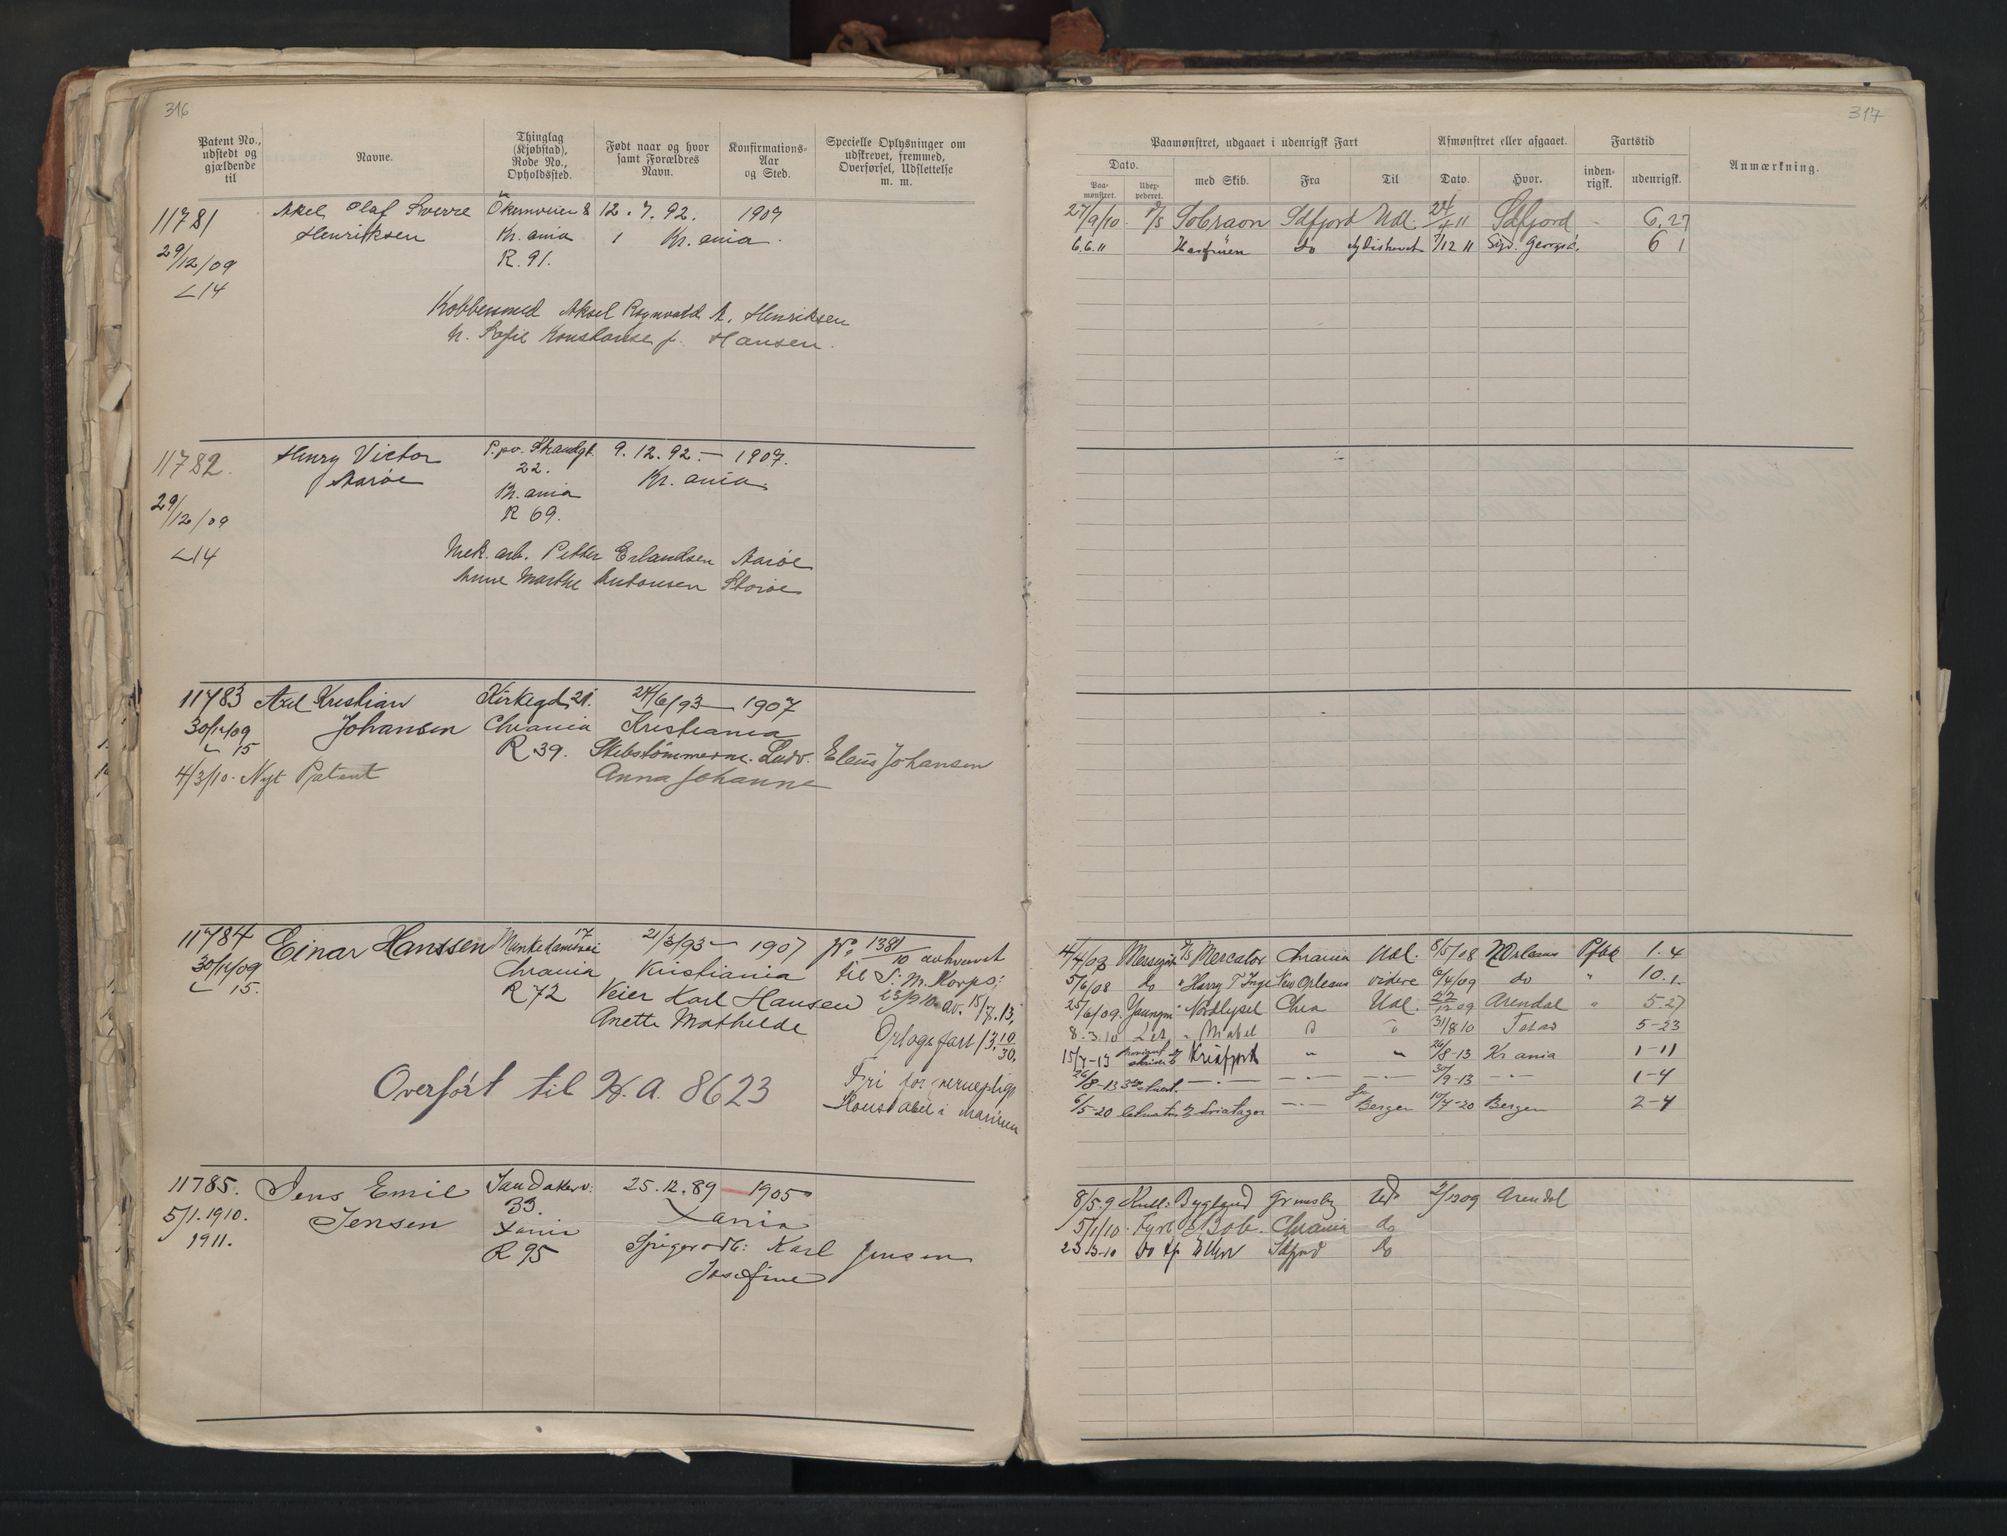 316
Patent No., udstedt og gjældende til
Navne.
Thinglag (Kjøbstad), Rode No., Opholdssted.
Født naar og hvor samt Forældres Navn.
Konfirmations-Aar og Sted.
Specielle Oplysninger om udskrevet, fremmed, Overførsel, Udslettelse m. m.
11781 Axel Olaf Sverre Økernveien 8 12. 7. 92. 1907
Henriksen Kr.ania 1 Kr. ania.
29/12/09 R. 91.
14
Kobbersmed Aksel Ragnvald A. Henriksen
Sofie Konstanse f. Hansen.
11782. Henry Victor P. pv. Strandgt. 9. 12. 92. — 1907.
Aarøe 22. Kr. ania.
29/12/09 Kr. ania
R 69.
14
Mek. arb. Petter Erlandsen Aarøe
Anne Marthe Antonsen
11783 Axel Kristian Kirkegd. 21. 24/6/93 — 1907
30/12/09 Johansen Chrania Kristiania
15 R 39. Ludv. Eleus Johansen
4/3/10. Nyt Patent Anna Johanne
11784 Einar Hanssen Munkedamsvei 17 21/3/93 — 1907 No. 1381/10 avhvervet
30/12/09 Chrania Kristiania til S. M. Korps;
15. R 72 Veier Karl Hansen 15/7.13,
Anette Mathilde
Orlogsfart 13. 10/30.
Fri for vernepligt
Overført til H. A. 8623
Konstabel i Marinen
11785. Jens Emil Sandakerv: 25. 12. 89 — 1905
5/1. 1910. Jensen 33. Xania
1911. Xania
R 95 Spigerarb: Karl Jensen
Josefine
317
Paamønstret, udgaaet i udenrigsk Fart
Afmønstret eller afgaaet.
Fartstid
Anmærkning.
Dato.
Paamønstret.
med Skib.
Fra
Til
Dato.
Hvor.
indenrigsk.
udenrigsk.
27/9/10. Sobraon Idfjord Udl. 24/4 11 Idfjord - 6. 27
6.6.11 Havfruen do 7/12 11 6 1
4/4/08 Mercator Chrania Udl. 8/5/08 1. 4
5/6/08 do Harry T Inge New Orleans videre 6/4/09 do " 10. 1.
25/6/09. Nordlyset Chra Udl. 22/12 09 Arendal " 5. 27
8. 3. 10 Mabel 31/8 10 5-23
15/7-13 Kr.afjord " " 26/8-13 Kr ania 1-11
26/8-13 — . — — . — — . — 30/9-13 — . — 1-4
6/5-20 — . — Bergen 10/7-20 Bergen 2-4
8/5.9 Bygland Grimsby Ud. 2/12 09 Arendal
5/1/10. Fyrb Bob. Chrania do
23 3-10 do do